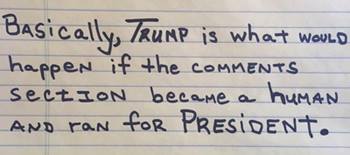 BASically, TRUMP is what WOULD
happen if the COMMENTS
SectIon became a humAN
AND ran foR PRESiDENT.